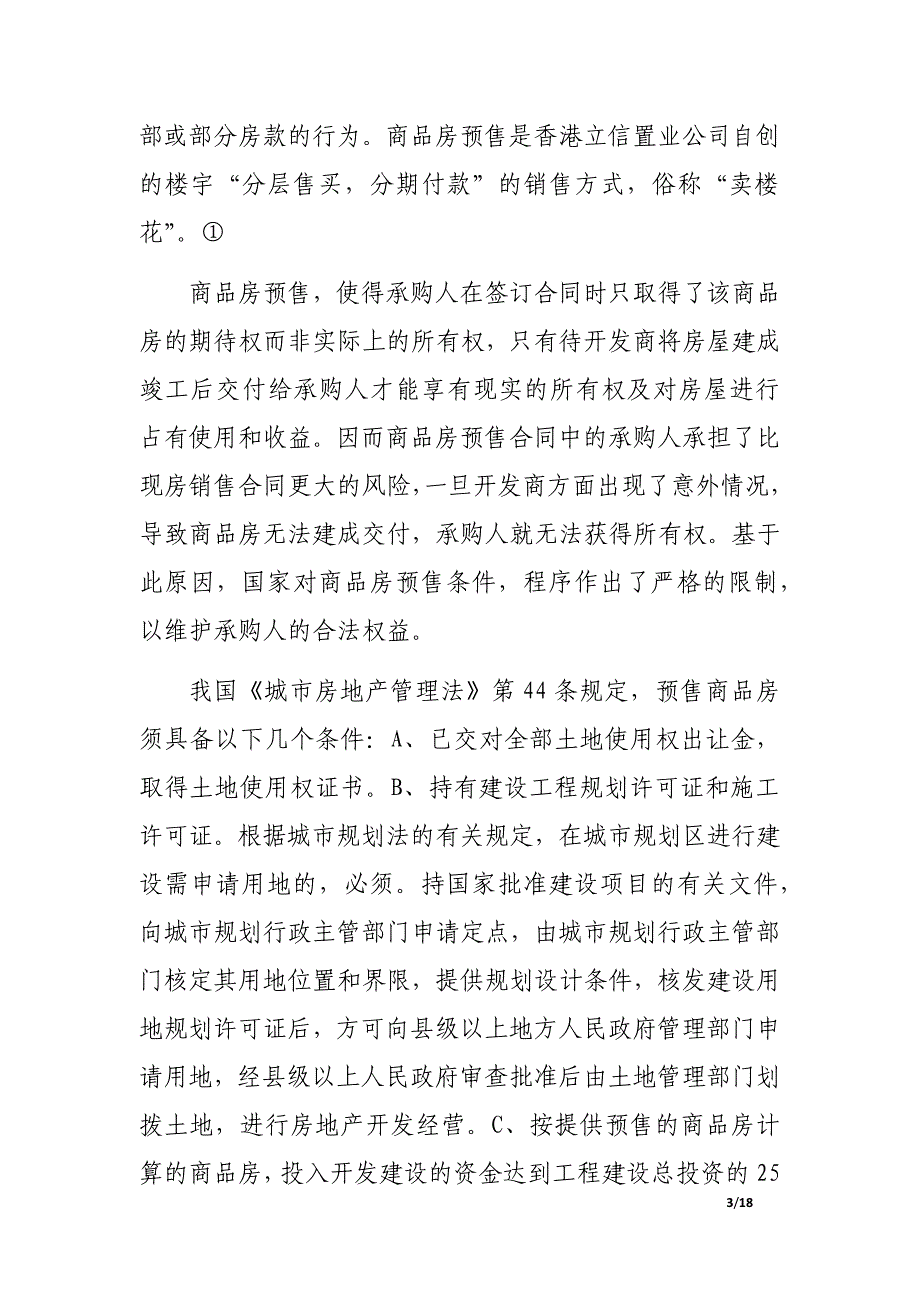 部或部分房款的行为。商品房预售是香港立信置业公司自创
的楼宇“分层售买，分期付款”的销售方式，俗称“卖楼
花”。①
商品房预售，使得承购人在签订合同时只取得了该商品
房的期待权而非实际上的所有权，只有待开发商将房屋建成
竣工后交付给承购人才能享有现实的所有权及对房屋进行
占有使用和收益。因而商品房预售合同中的承购人承担了比
现房销售合同更大的风险，一旦开发商方面出现了意外情况，
导致商品房无法建成交付，承购人就无法获得所有权。基于
此原因，国家对商品房预售条件，程序作出了严格的限制，
以维护承购人的合法权益。
我国《城市房地产管理法》第 44 条规定，预售商品房
须具备以下几个条件：A、已交对全部土地使用权出让金，
取得土地使用权证书。B、持有建设工程规划许可证和施工
许可证。根据城市规划法的有关规定，在城市规划区进行建
设需申请用地的，必须。持国家批准建设项目的有关文件，
向城市规划行政主管部门申请定点，由城市规划行政主管部
门核定其用地位置和界限，提供规划设计条件，核发建设用
地规划许可证后，方可向县级以上地方人民政府管理部门申
请用地，经县级以上人民政府审查批准后由土地管理部门划
拨土地，进行房地产开发经营。C、按提供预售的商品房计
算的商品房，投入开发建设的资金达到工程建设总投资的 25
3/18